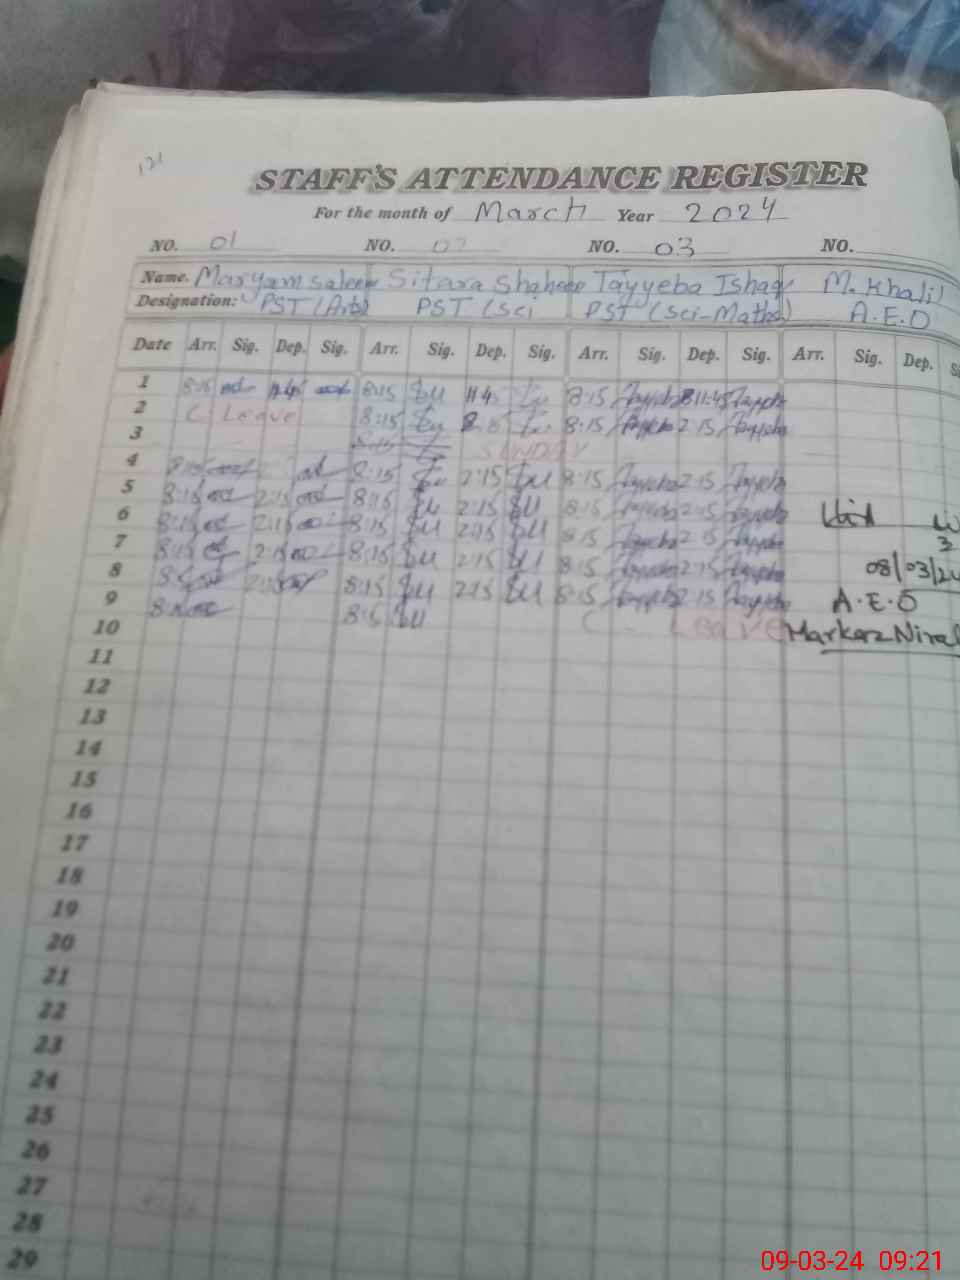 121
STAFF'S ATTENDANCE REGISTER
For the month of March Year 2024
NO. 01 NO. 02 NO. 03 NO.
Name. Maryam Saleem Sitara Shaheen Tayyeba Ishaq M. Khalil
Designation: PST (Arts) PST (Sci PST (Sci-Maths) A.E.O
Date Arr. Sig. Dep. Sig. Arr. Sig. Dep. Sig. Arr. Sig. Dep. Sig. Arr. Sig. Dep.
1 8:15 8:15 11:45 8:15 Tayyeba 11:45 Tayyeba
2 C Leave 8:15 8:15 Tayyeba 2:15 Tayyeba
3 8:15 SUNDAY
4 8:15 8:15 2:15 8:15 Tayyeba 2:15 Tayyeba
5 8:15 2:15 8:15 2:15 8:15 Tayyeba 2:15 Tayyeba
6 8:15 2:15 8:15 2:15 8:15 Tayyeba 2:15 Tayyeba
7 8:15 2:15 8:15 2:15 8:15 Tayyeba 2:15 Tayyeba
8 2:15 8:15 2:15 8:15 Tayyeba 2:15 Tayyeba
9 8:15 C Leave
08/03/24
A.E.O
Markaz
10
11
12
13
14
15
16
17
18
19
20
21
22
23
24
25
26
27
28
29
09-03-24 09:21